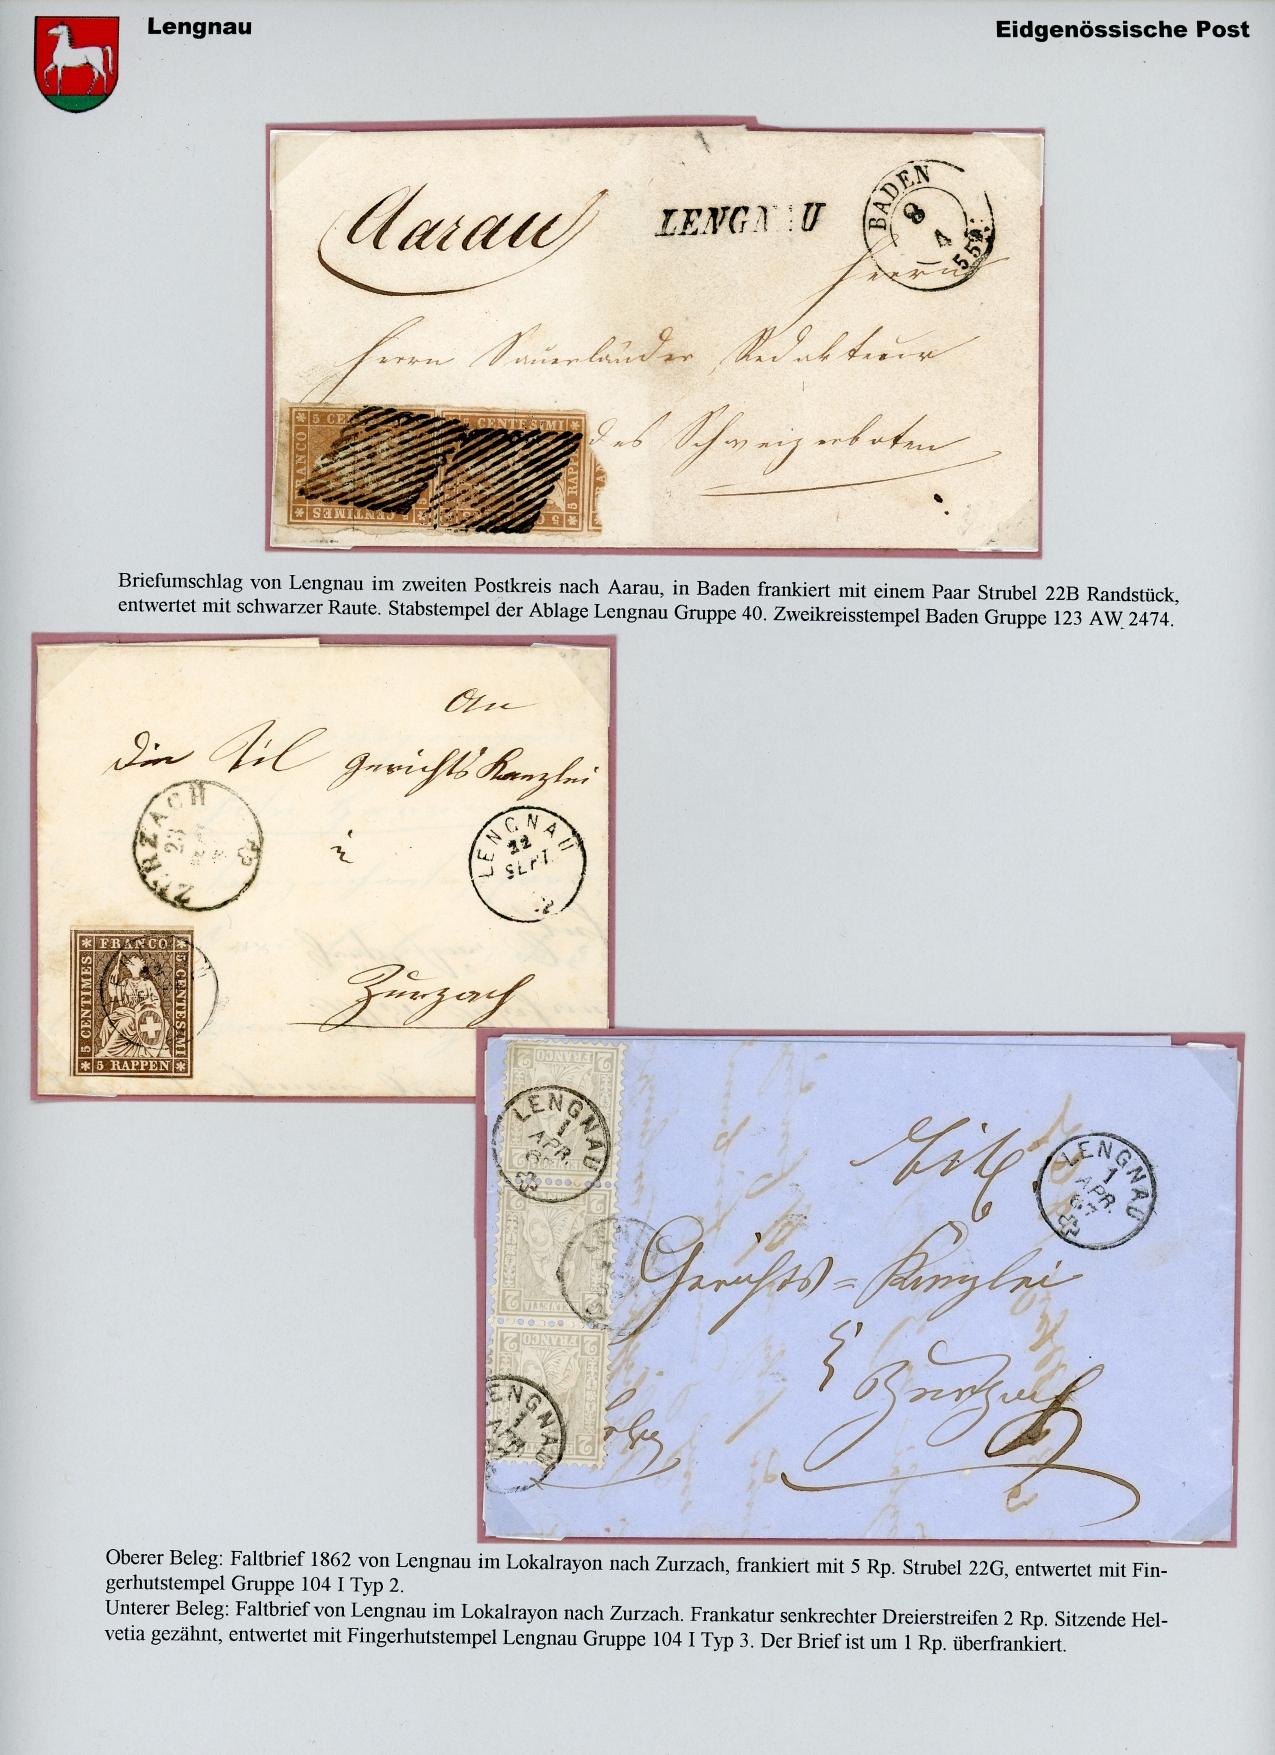 Lengnau
Eidgenössische Post
Aarau
LENGNAU
BADEN
8
4
55
Herrn
Herrn Sauerländer, Redakteur
des Schweizerboten
5 CENTESIMI
FRANCO
5 CENTIMES
5 RAPPEN
Briefumschlag von Lengnau im zweiten Postkreis nach Aarau, in Baden frankiert mit einem Paar Strubel 22B Randstück,
entwertet mit schwarzer Raute. Stabstempel der Ablage Lengnau Gruppe 40. Zweikreisstempel Baden Gruppe 123 AW 2474.
An
Die Gerichts Kanzlei
ZURZACH
23
LENGNAU
22
SEPT.
Zurzach
FRANCO
5 CENTIMES
5 CENTESIMI
5 RAPPEN
FRANCO
2
HELVETIA
LENGNAU
1
APR.
LENGNAU
1
APR.
67
Gerichts=Kanzlei
Zurzach
LENGNAU
1
APR.
Oberer Beleg: Faltbrief 1862 von Lengnau im Lokalrayon nach Zurzach, frankiert mit 5 Rp. Strubel 22G, entwertet mit Fin-
gerhutstempel Gruppe 104 I Typ 2.
Unterer Beleg: Faltbrief von Lengnau im Lokalrayon nach Zurzach. Frankatur senkrechter Dreierstreifen 2 Rp. Sitzende Hel-
vetia gezähnt, entwertet mit Fingerhutstempel Lengnau Gruppe 104 I Typ 3. Der Brief ist um 1 Rp. überfrankiert.